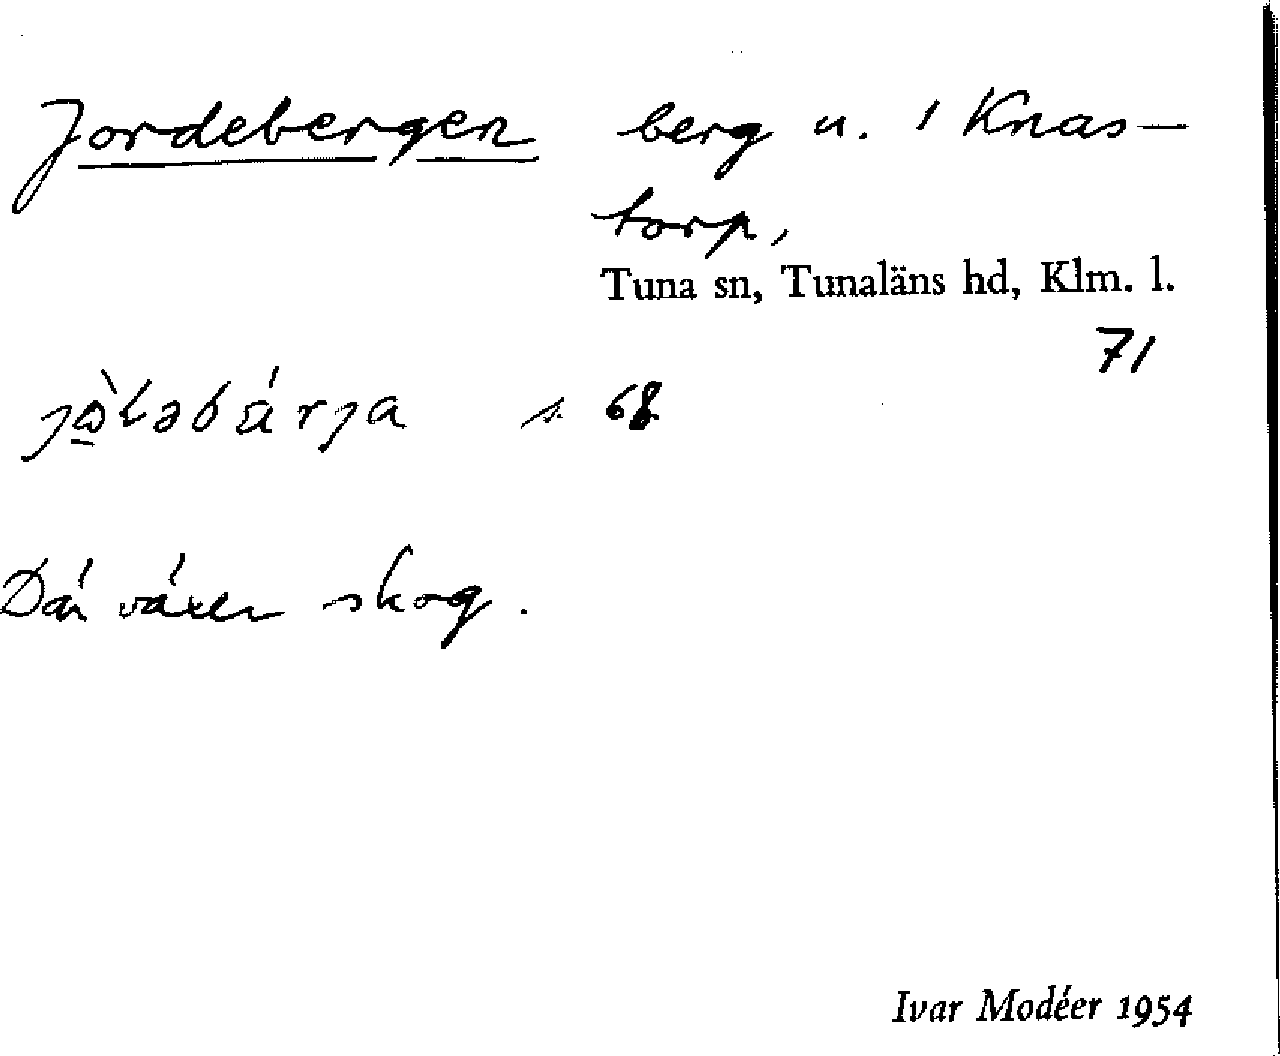 Jordebergen berg u. 1 Knas-
torp,
Tuna sn, Tunaläns hd, Klm. l.
71
s. 68
Där växer skog.
Ivar Modéer 1954